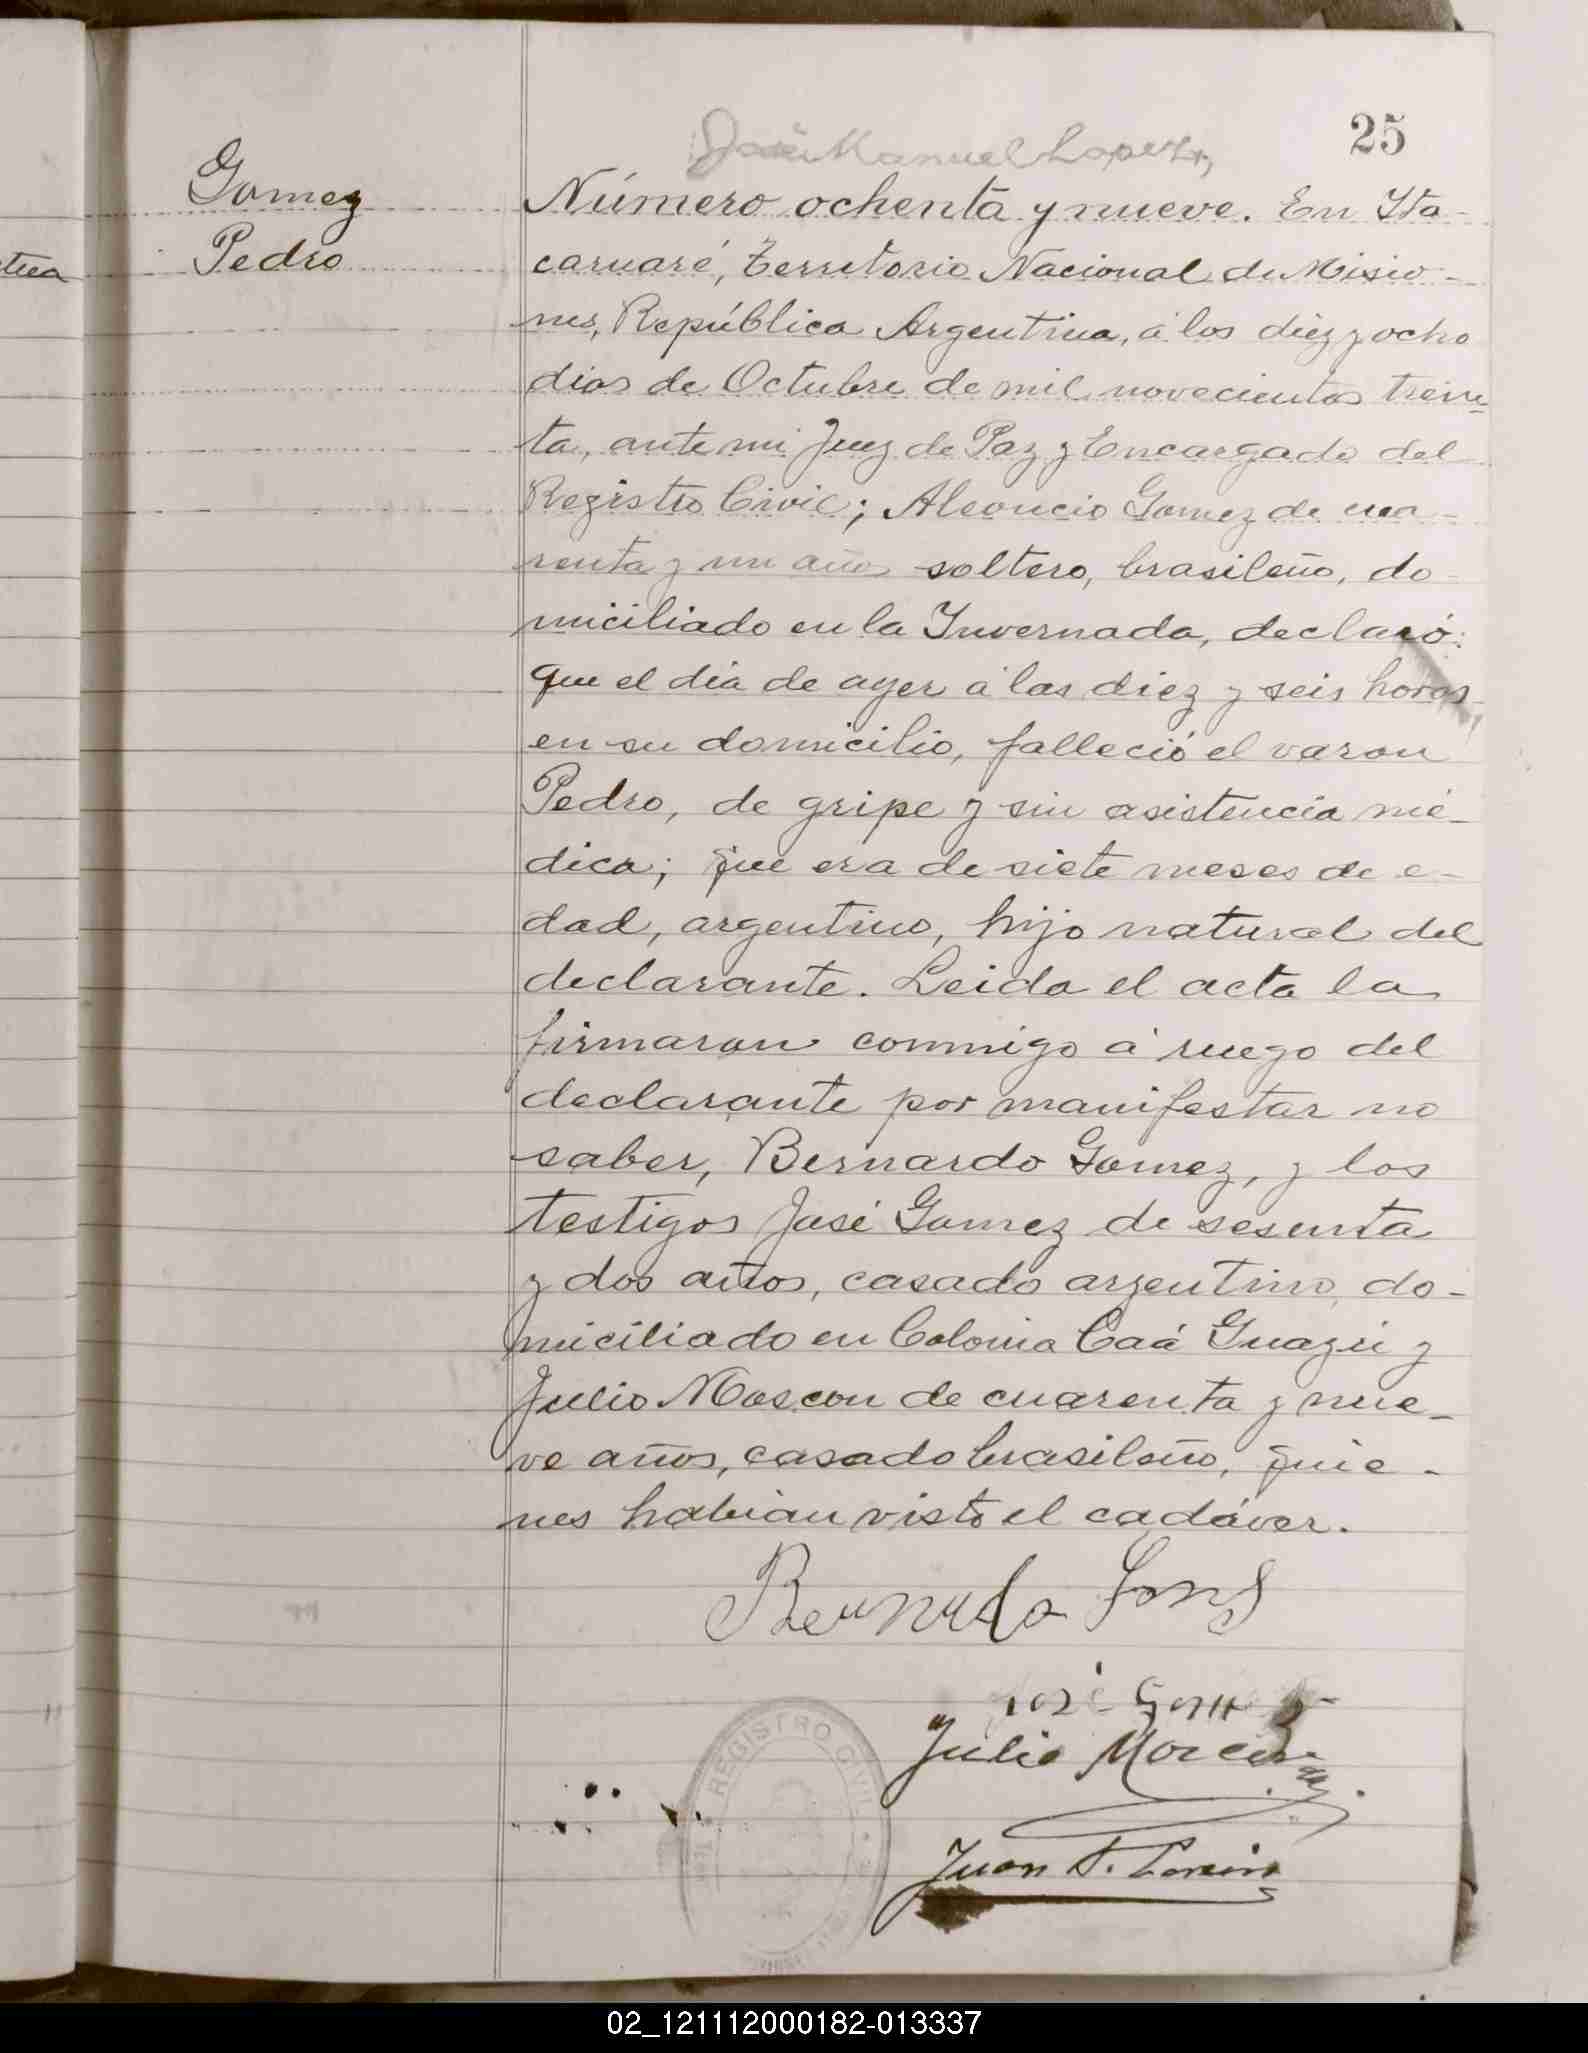 25
José Manuel Lopez
Gomez
Pedro
Número ochenta y nueve. En Ita-
caruaré, Territorio Nacional de Misio-
nes, República Argentina, á los diez y ocho
dias de Octubre de mil novecientos trein-
ta, ante mi Juez de Paz y Encargado del
Registro Civil; Aleoncio Gomez de cua-
renta y un años soltero, brasileño, do-
miciliado en la Invernada, declaró:
que el dia de ayer á las diez y seis horas
en su domicilio, falleció el varon
Pedro, de gripe y sin asistencia mé-
dica; que era de siete meses de e-
dad, argentino, hijo natural del
declarante. Leida el acta la
firmaron conmigo á ruego del
declarante por manifestar no
saber, Bernardo Gomez, y los
testigos José Gomez de sesenta
y dos años, casado argentino, do-
miciliado en Colonia Caá Guazú y
Julio Moscon de cuarenta y nue-
ve años, casado brasileño, quie-
nes habian visto el cadáver.
José Gomez
Julio
REGISTRO CIVIL
Juan T.
02_121112000182-013337